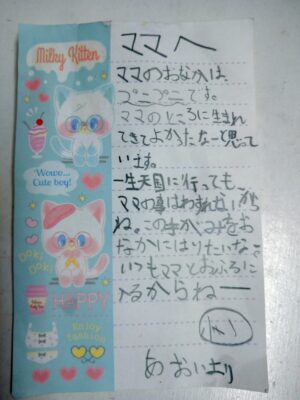 ママへ
ママのおなかは
プニプニです。
ママのところに生まれ
てきてよかたなーて思って
います。
一生天国に行っても
ママの事はわすれないから
ね。この手がみをお
なかにはりたいな。
いつもママとおふろに
入るからねー
あおいより
Milky Kitten
Wowe...
Cute boy!
DOKI
DOKI
HAPPY
Enjoy
fashion